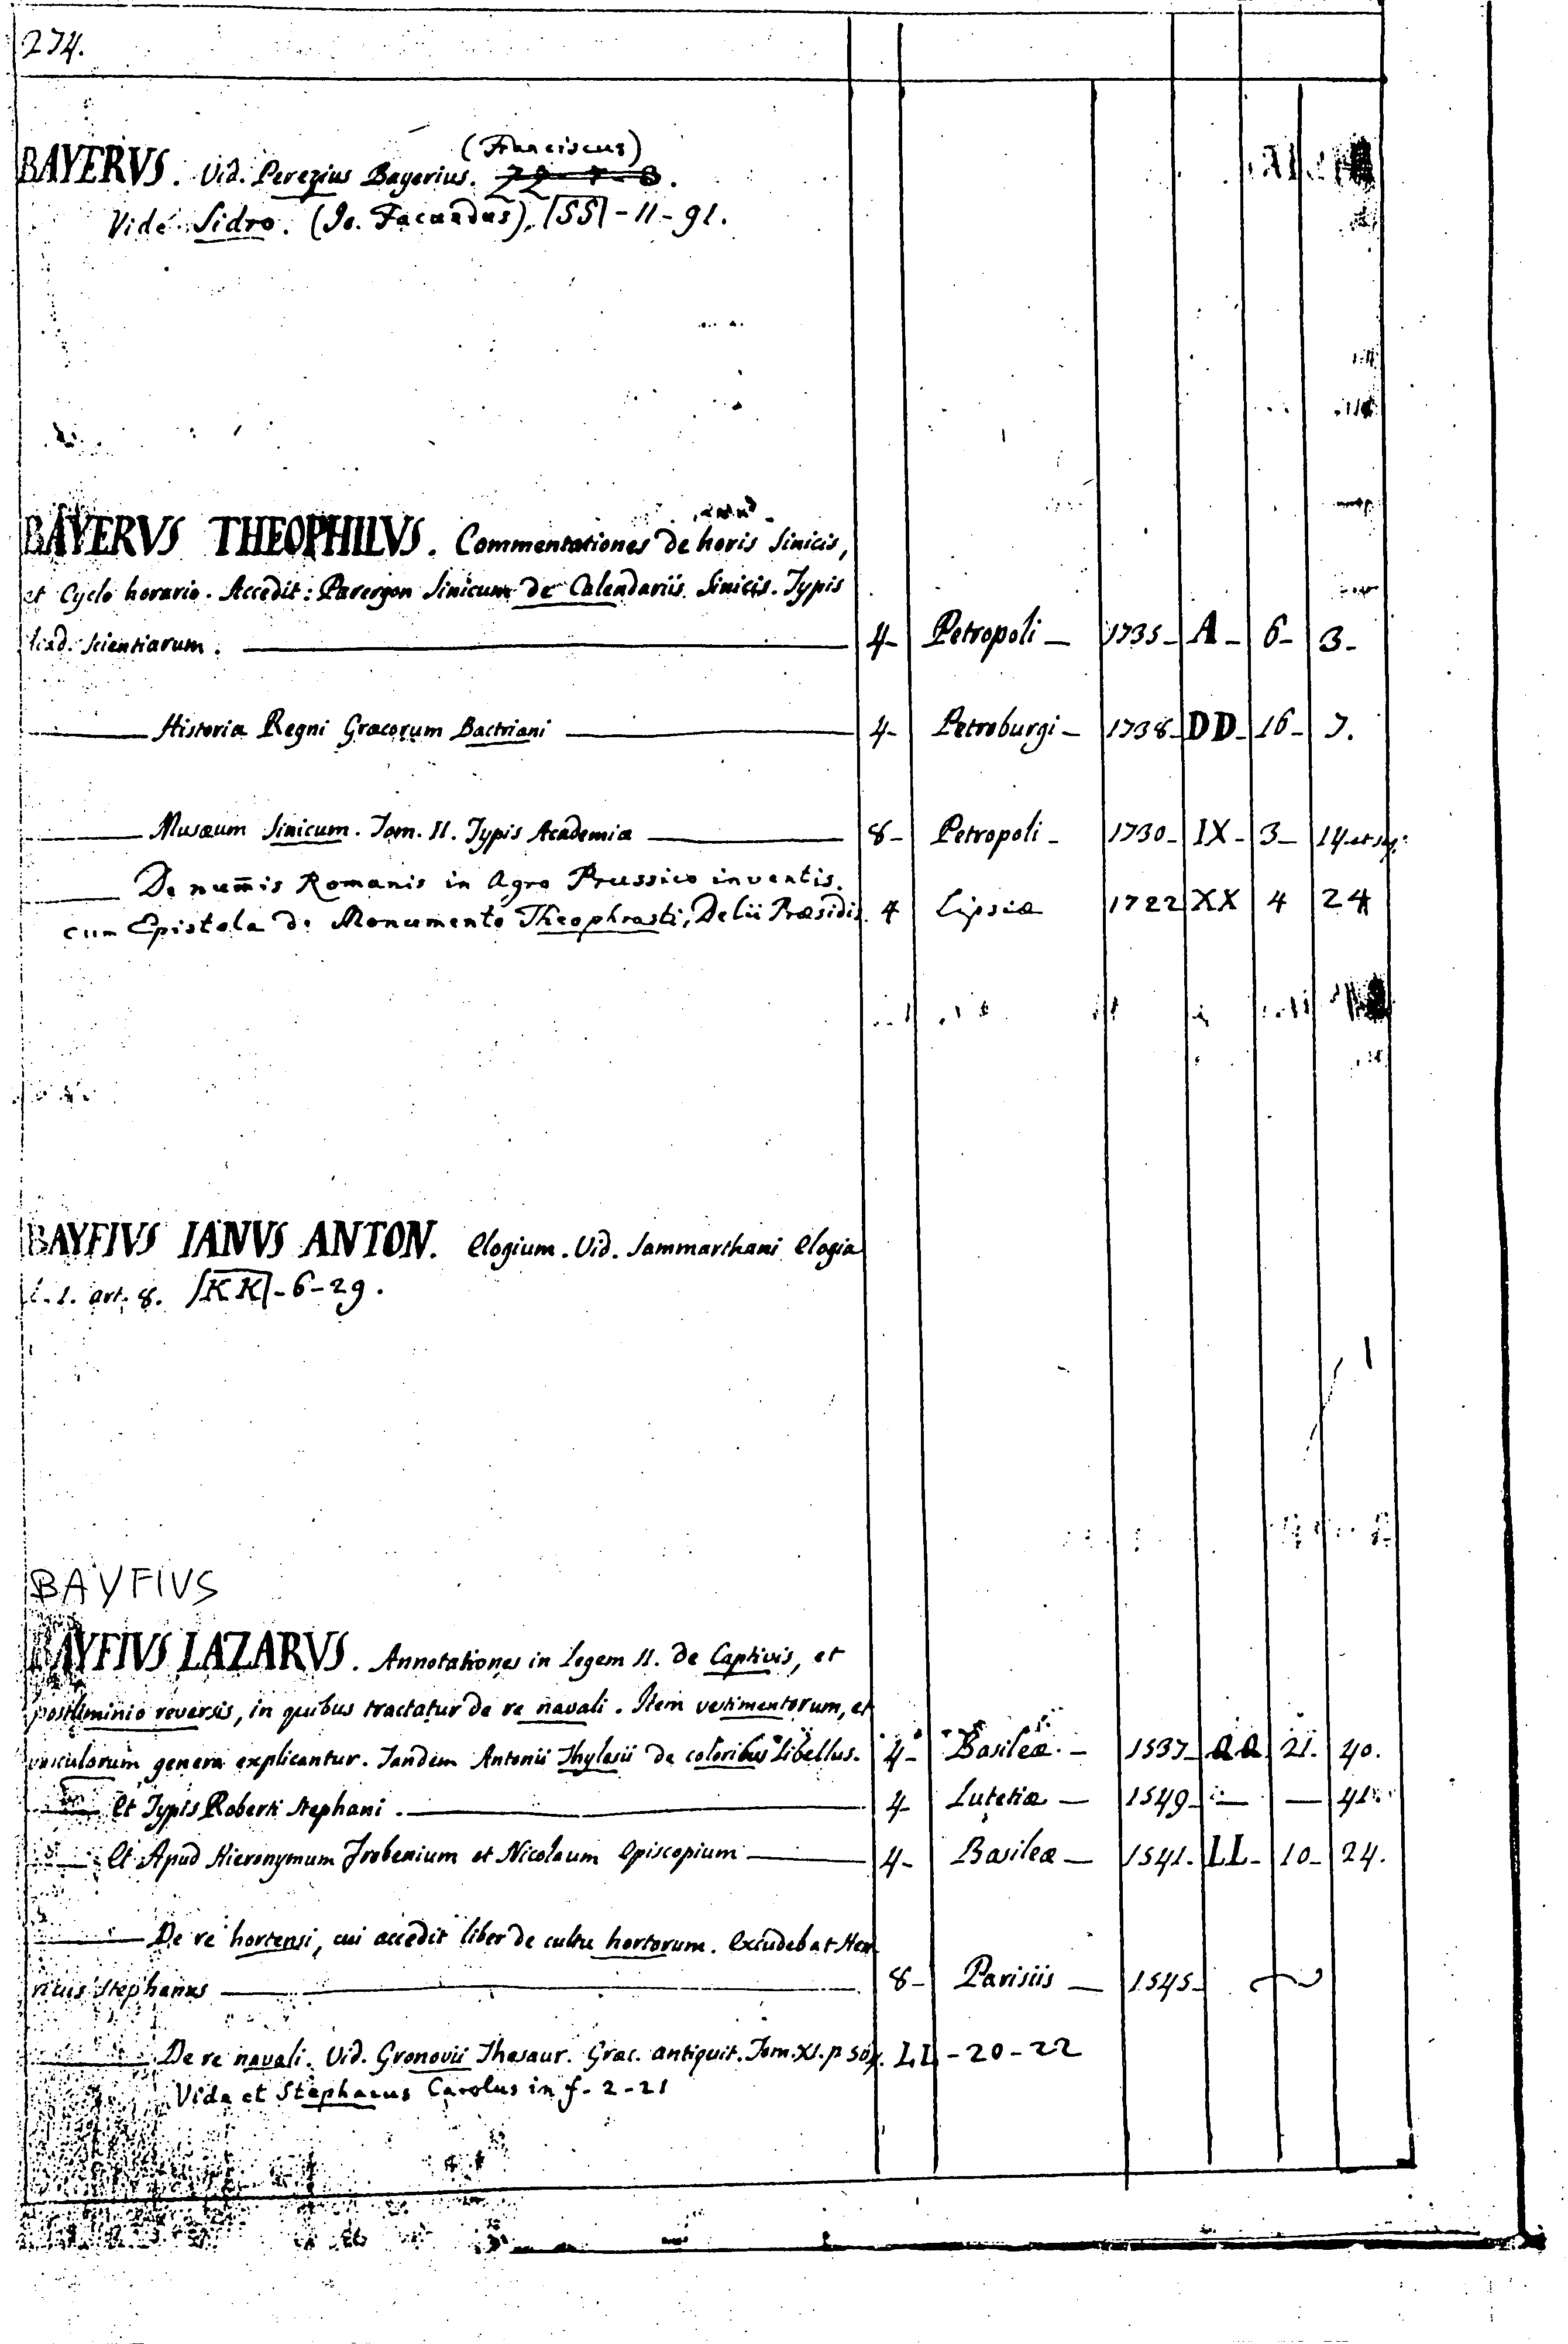 274.
(Franciscus)
BAYERVS. Vid. Perezius Bayerius.
Vide Sidro. (Jo. Facundus), SS - 11 - 91.
BAYERVS THEOPHILVS. Commentationes de horis Sinicis,
et Cyclo horario. Accedit: Parergon Sinicum de Calendariis Sinicis. Typis
Acad. Scientiarum. — 4 - Petropoli — 1735 - A - 6 - 3 -
— Historia Regni Græcorum Bactriani — 4 - Petroburgi — 1738 - DD - 16 - 7.
— Musæum Sinicum. Tom. II. Typis Academiæ — 8 - Petropoli - 1730 - IX - 3 - 14 et seq.
— De num̅is Romanis in Agro Prussico inventis.
cum Epistola de Monumento Theophrasti, Delii Præsidis 4 Lipsiæ 1722 XX 4 24
BAYFIVS IANVS ANTON. Elogium. Vid. Sammarthani Elogia
L. 1. art. 8. KK - 6 - 29.
BAYFIVS
BAYFIVS LAZARVS. Annotationes in legem II. de Captivis, et
postliminio reversis, in quibus tractatur de re navali. Item vestimentorum, et
vasculorum genera explicantur. Tandem Antonii Thylesii de coloribus Libellus. 4 - Basileæ - 1537 - aa 21. 40.
— Et Typis Roberti Stephani. — 4 - Lutetiæ — 1549 - — — 41
— Et Apud Hieronymum Frobenium et Nicolaum Episcopium — 4 - Basileæ — 1541. LL - 10 - 24.
— De re hortensi, cui accedit liber de cultu hortorum. Excudebat Hen
ricus Stephanus — 8 - Parisiis — 1545 -
— De re navali. Vid. Gronovii Thesaur. Græc. antiquit. Tom. XI. p LL - 20 - 22
Vide et Stephanus Carolus in f - 2 - 21